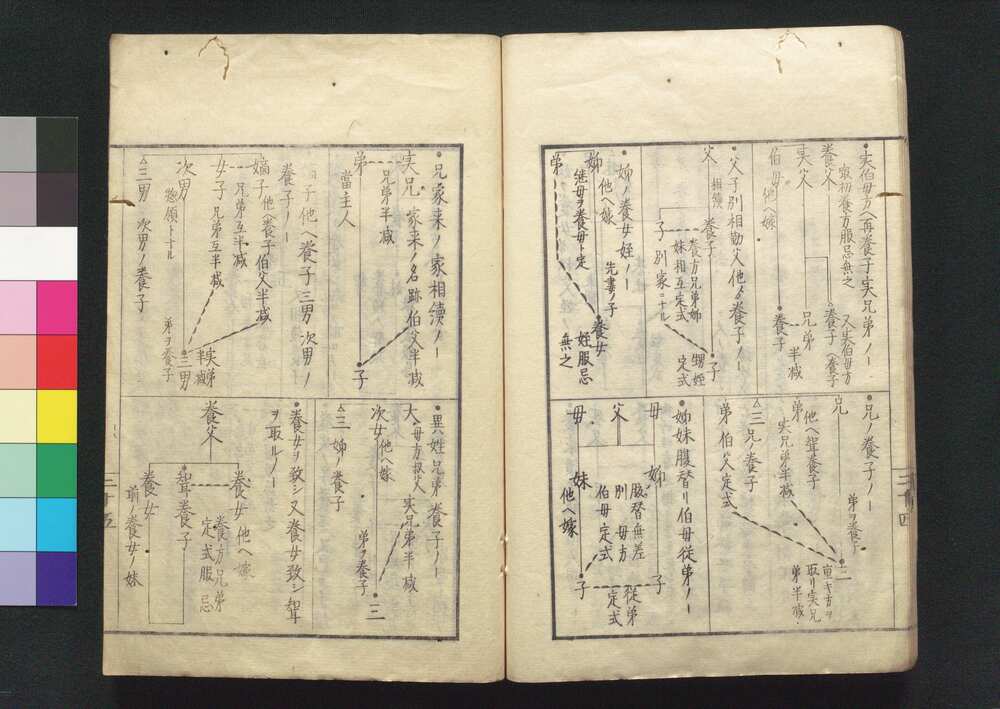 実伯母方ヘ再養子実兄弟ノ一
養父
最初養方服忌無之
又実伯母方
養子ヘ養子
実父
兄弟
半減
伯母
他ヘ嫁
養子
父子別相勤父他ノ養子ノ一
父
相続
養子
養方兄弟姉
妹相互定式
甥姪
定式
子
子
別家ニナル
姉ノ養女姪ノ一
姉
他ヘ嫁
先妻ノ子
養女
姪服忌
無之
弟
継母ヲ養母ト定
兄ノ養子ノ一
兄
弟ヲ養子
三
重キ方ヲ
取リ実兄
弟半減
弟
他ヘ聟養子
実兄弟半減
三兄ノ養子
弟伯父定式
姉妹腹替リ伯母従弟ノ一
母
姉
父
腹替無差
別 母方
伯母定式
子
従弟
定式
母
妹
他ヘ嫁
子
三十四
兄家来ノ家相続ノ一
実兄
家来ノ名跡
伯父半減
子
兄弟半減
弟
当主人
子他ヘ養子三男次男ノ
養子ノ一
嫡子
他ヘ養子
伯父半減
兄弟互半減
女子
兄弟互半減
実弟
半減
三男
弟ヲ養子
次男
惣領トナル
三男 次男ノ養子
異姓兄弟養子ノ一
大母方叔父
実兄弟半減
三
弟ヲ養子
次女
他ヘ嫁
三 姉ノ養子
養女ヲ致シ又養女致シ聟
ヲ取ルノ一
養父
養女
他ヘ嫁
養方兄弟
定式服忌
聟養子
養女
前ノ養女ノ妹
三十五